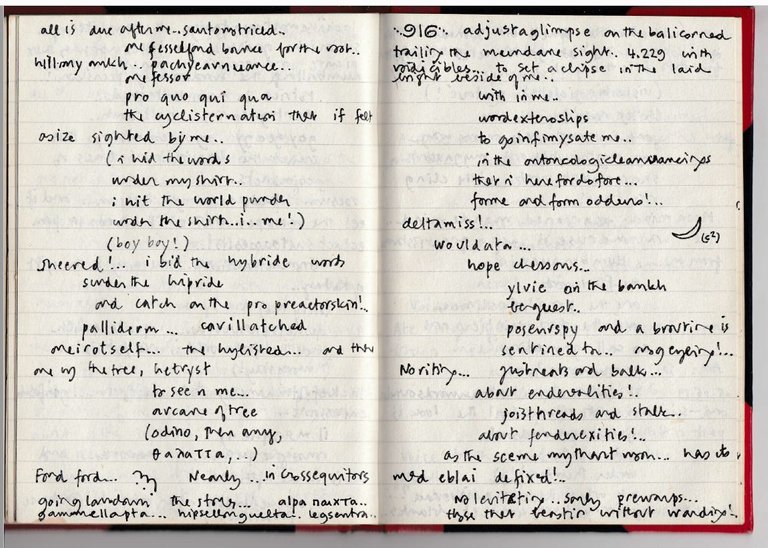 all is due after me.. santomotriced..
one fesselfond bounce for the root..
hillmy much.. pachyearnueance..
one fessor
pro quo qui qua
the cyclisternation that if felt
asize sighted by me..
(i hid the words
under my shirt..
i hit the world purder
under the shirt..i.. me!.)
(boy boy!)
sheered!... i bid the hybride words
surder the hipride
and catch on the pro preactorskin!..
palliderm... cavillatched
oneirotself... the hylisted... and then
one by the tree, hetryst
to see n me...
arcane of tree
(odino, then any,
θαλαττα,..)
Ford ford... Nearly... in crossequitors
going the strns...
gammellapta... hipsellonguelta!. legsentra..
:.916:. adjustaglimpse on the balicorned
trailing the meundane sight.. 4.229 with
voidicibles... to set a clipse in the laid
bright beside of me..
with in me..
wordextenoslips
to goinfimysate me..
in the
that i herefordofore...
forme and form oddens!...
deltamiss!..
wouldata...
hope chessons...
ylvie on the bankh
bequest..
posenrspy and a brotine is
sentined to... nogeyeing!...
Noriting... justneats and balks...
about endervalities!.
joistthreads and stalk..
about fenderexities!...
as the sceeme mythant moon... has to
med eblai defixed!..
no levitating.. sonly prewarps...
those that beastir without wanding!.
(s²)